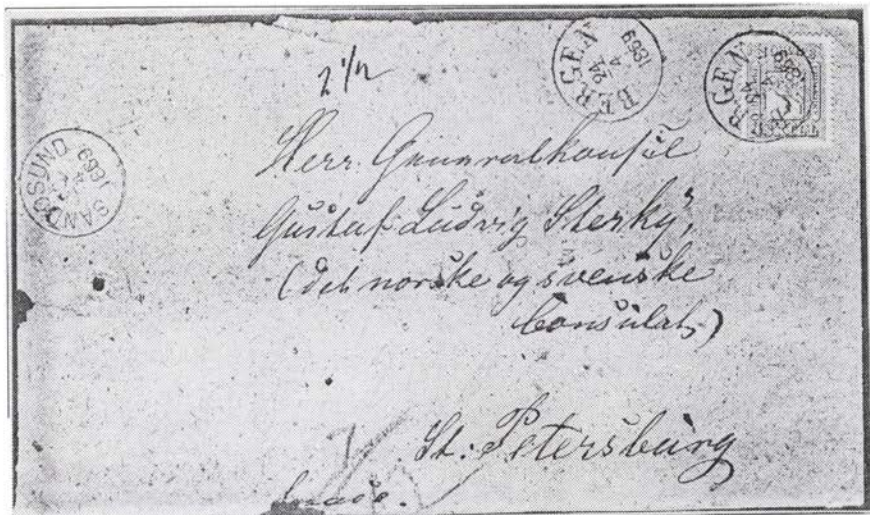 2 1/2
BERGEN
24
4
1869
BERGEN
24
4
1869
SANDØSUND
4
1869
Herr Generalkonsül
Gustaf Ludvig Sterky,
(det norske og svenske
Consulat)
St: Petersburg